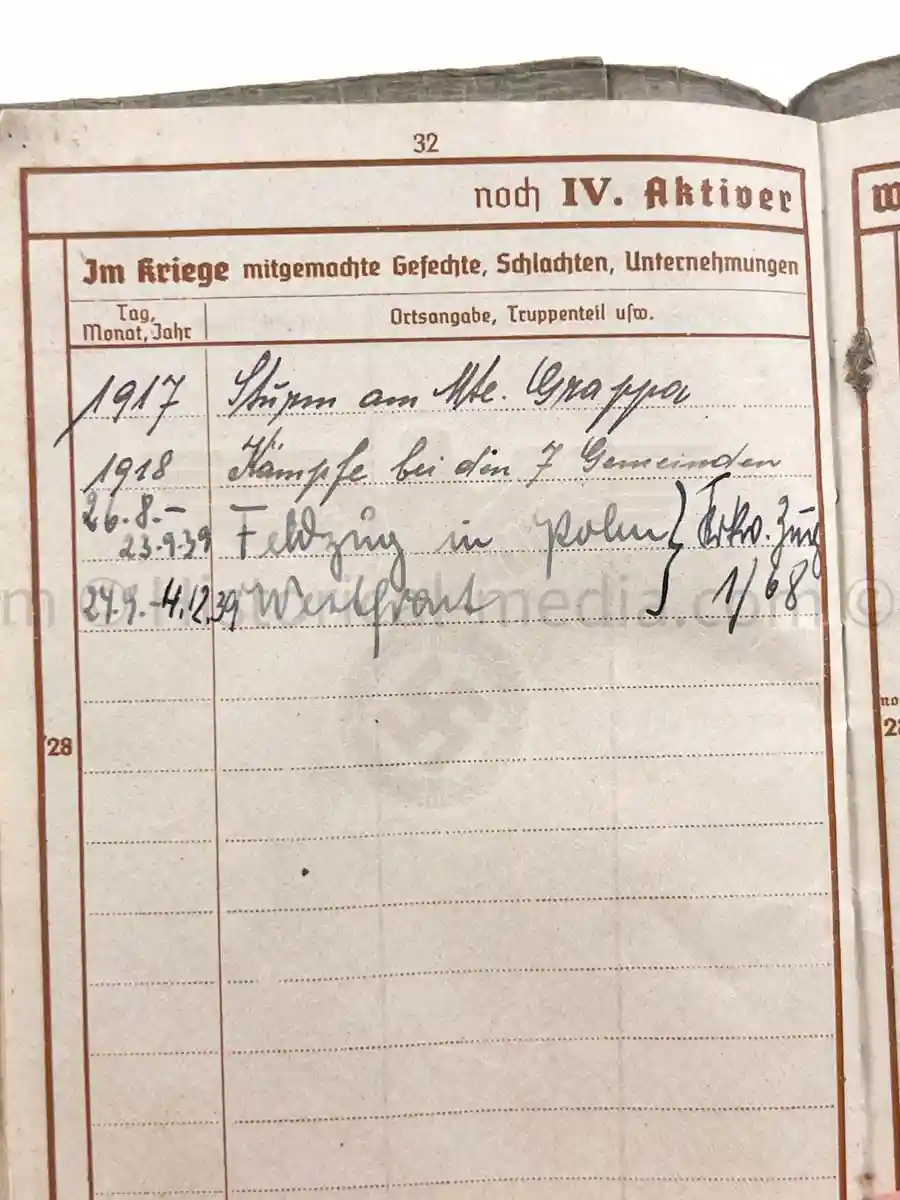 32
noch IV. Aktiver
Im Kriege mitgemachte Gefechte, Schlachten, Unternehmungen
Tag,
Monat, Jahr
Ortsangabe, Truppenteil usw.
1917 Sturm am Mte. Grappa
1918 Kämpfe bei den 7 Gemeinden
26.8.–
23.9.39 Feldzug in Polen } Krkw. Zug
24.9.–4.12.39 Westfront 1/68
28